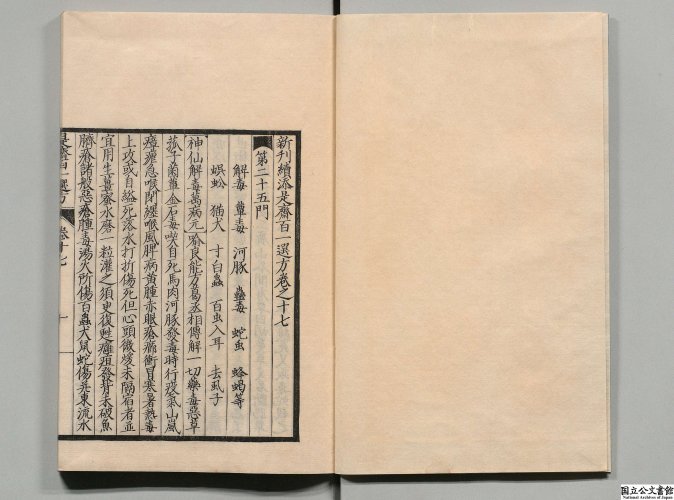 新刊續添是齋百一選方卷之十七
第二十五門
解毒 蕈毒 河豚 蠱毒 蛇虫 蜂蝎等
蜈蚣 猫犬 寸白蟲 百虫入耳 去虱子
神仙解毒萬病元 喻良能方葛丞相傳解一切藥毒惡草
菰子菌蕈金石毒喫自死馬肉河豚發毒時行疫氣山嵐
瘴瘧急喉閉纏喉風脾病黃腫赤眼瘡癤衝冒寒暑熱毒
上攻或自縊死落水打折傷死但心頭微煖未隔宿者並
宜用生薑蜜水磨一粒灌之須臾復甦癰疽發背未破魚
臍瘡諸般惡瘡腫毒湯火所傷百蟲犬鼠蛇傷並東流水
是齋百一選方 卷十七
国立公文書館
National Archives of Japan